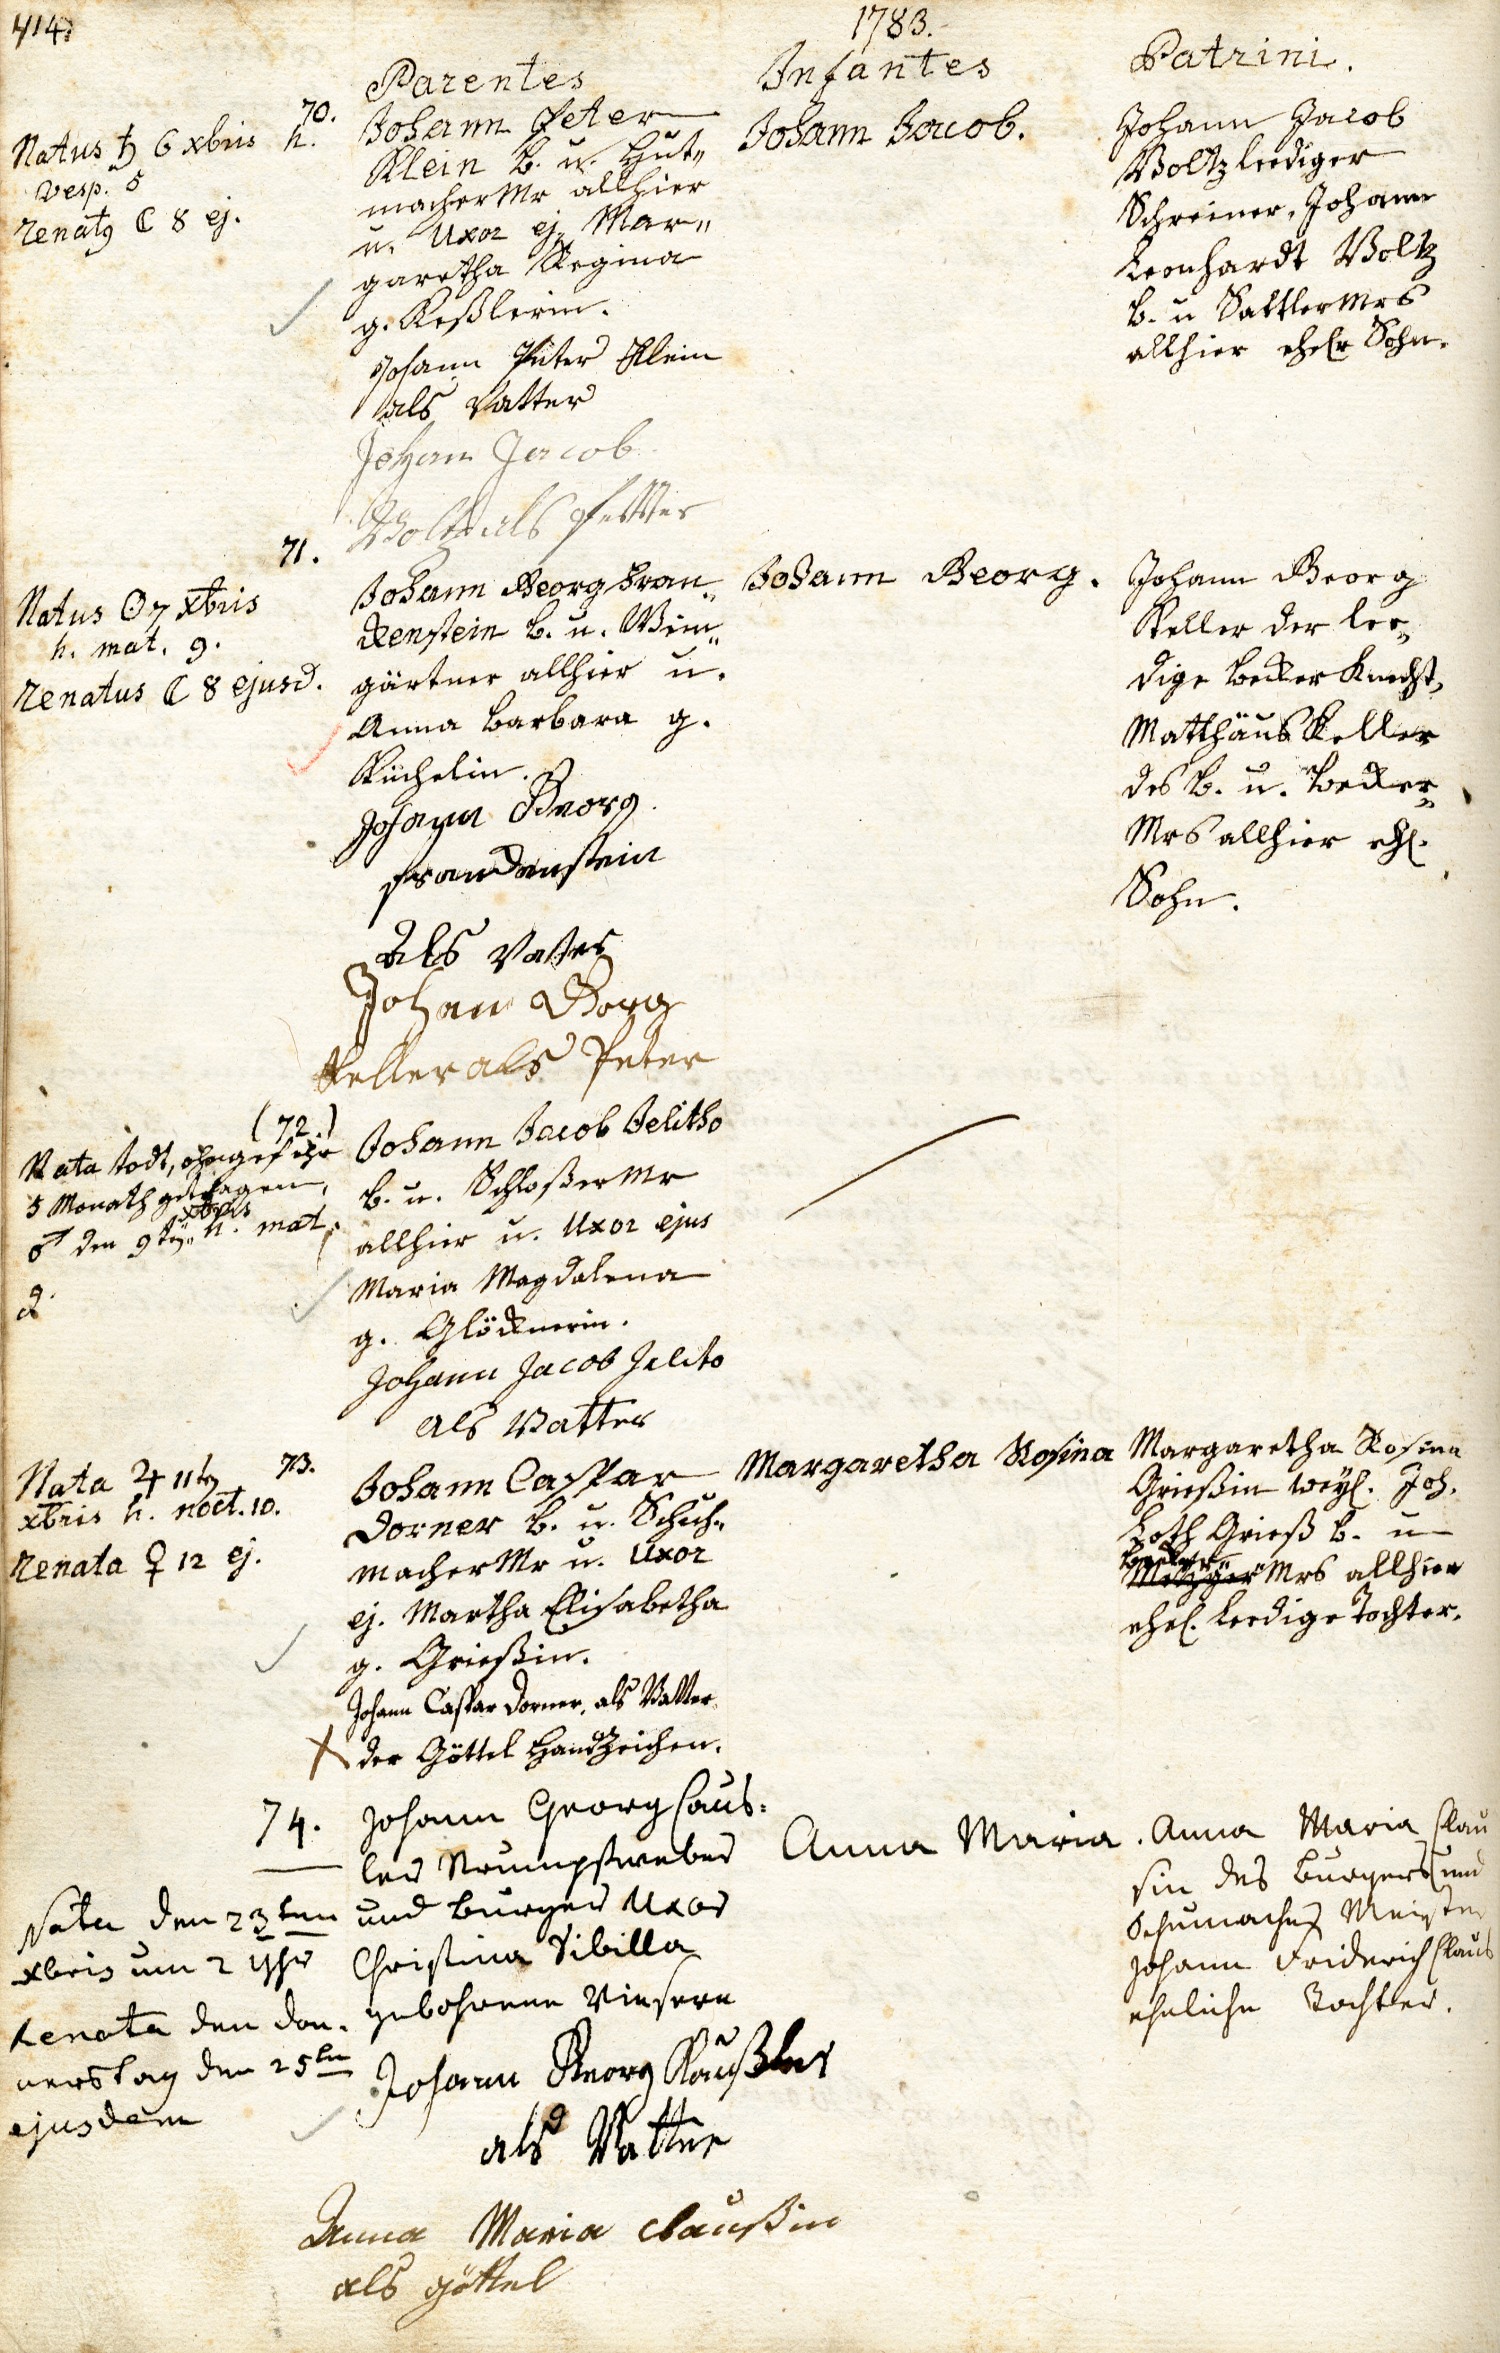 414.
1783.
Parentes
Infantes
Patrini.
70.
Natus ♄ 6 xbris h.
vesp. 5
renatg ☾ 8 ej.
Johann Peter
Klein b. u. Hut„
macherMr allhier
u. Uxor ej. Mar„
garetha Regina
g. Keßlerin.
Johann Peter Klein
als Vatter
Johan Jacob
Voltz als Petter
Johann Jacob.
Johann Jacob
Voltz lediger
Schreiner, Johann
Leonhardt Voltz
b. u Sattler Mrs
allhier ehelr Sohn.
71.
Natus ☉ 7 xbris
h. mat. 9.
renatus ☾ 8 ejusd.
Johann Georg Fran„
kenstein b. u. Wein„
gärtner allhier u.
Anna Barbara g.
Küchelin.
Johann Georg
Franckenstein
Als Vatter
Johan Georg
Keller als Peter
Johann Georg.
Johann Georg
Keller der le„
dige becker Knecht,
Matthäus Keller
des b. u. becker„
Mrs allhier ehl.
Sohn.
(72.)
Nata todt, ohngefehr
5 Monath getragen,
♂ den 9ten xbris h. mat.
2.
Johann Jacob Jelitho
b. u. Schloßer Mr
allhier u. Uxor ejus
Maria Magdalena
g. Glöcknerin.
Johann Jacob Jelito
als Vatter
73.
Nata ♃ 11ten
xbris h. noct. 10.
renata ♀ 12 ej.
Johann Caspar
Dorner b. u. Schuh„
macher Mr u. Uxor
ej. Martha Elisabetha
g. Grießin.
Johann Caspar Dorner, als Vatter
X der Göttel Handzeichen.
Margaretha Rosina
Margaretha Rosina
Grießin weyl. Joh.
Loth Grieß b. u
becker„
Metzger Mrs allhier
ehel. ledige Tochter.
74.
Nata den 23ten
xbris um 2 Uhr
Renata den don„
nerstag den 25ten
ejusdem
Johann Georg Claus„
ler Strumpfweber
und burger Uxor
Christina Sibilla
gebohrene
Johann Georg Klaußler
als Vatter
Anna Maria Claußin
als göttel
Anna Maria.
Anna Maria Clau
sin des burgers und
Schumacher Meister
Johann Friderich Claus
eheliche Tochter.